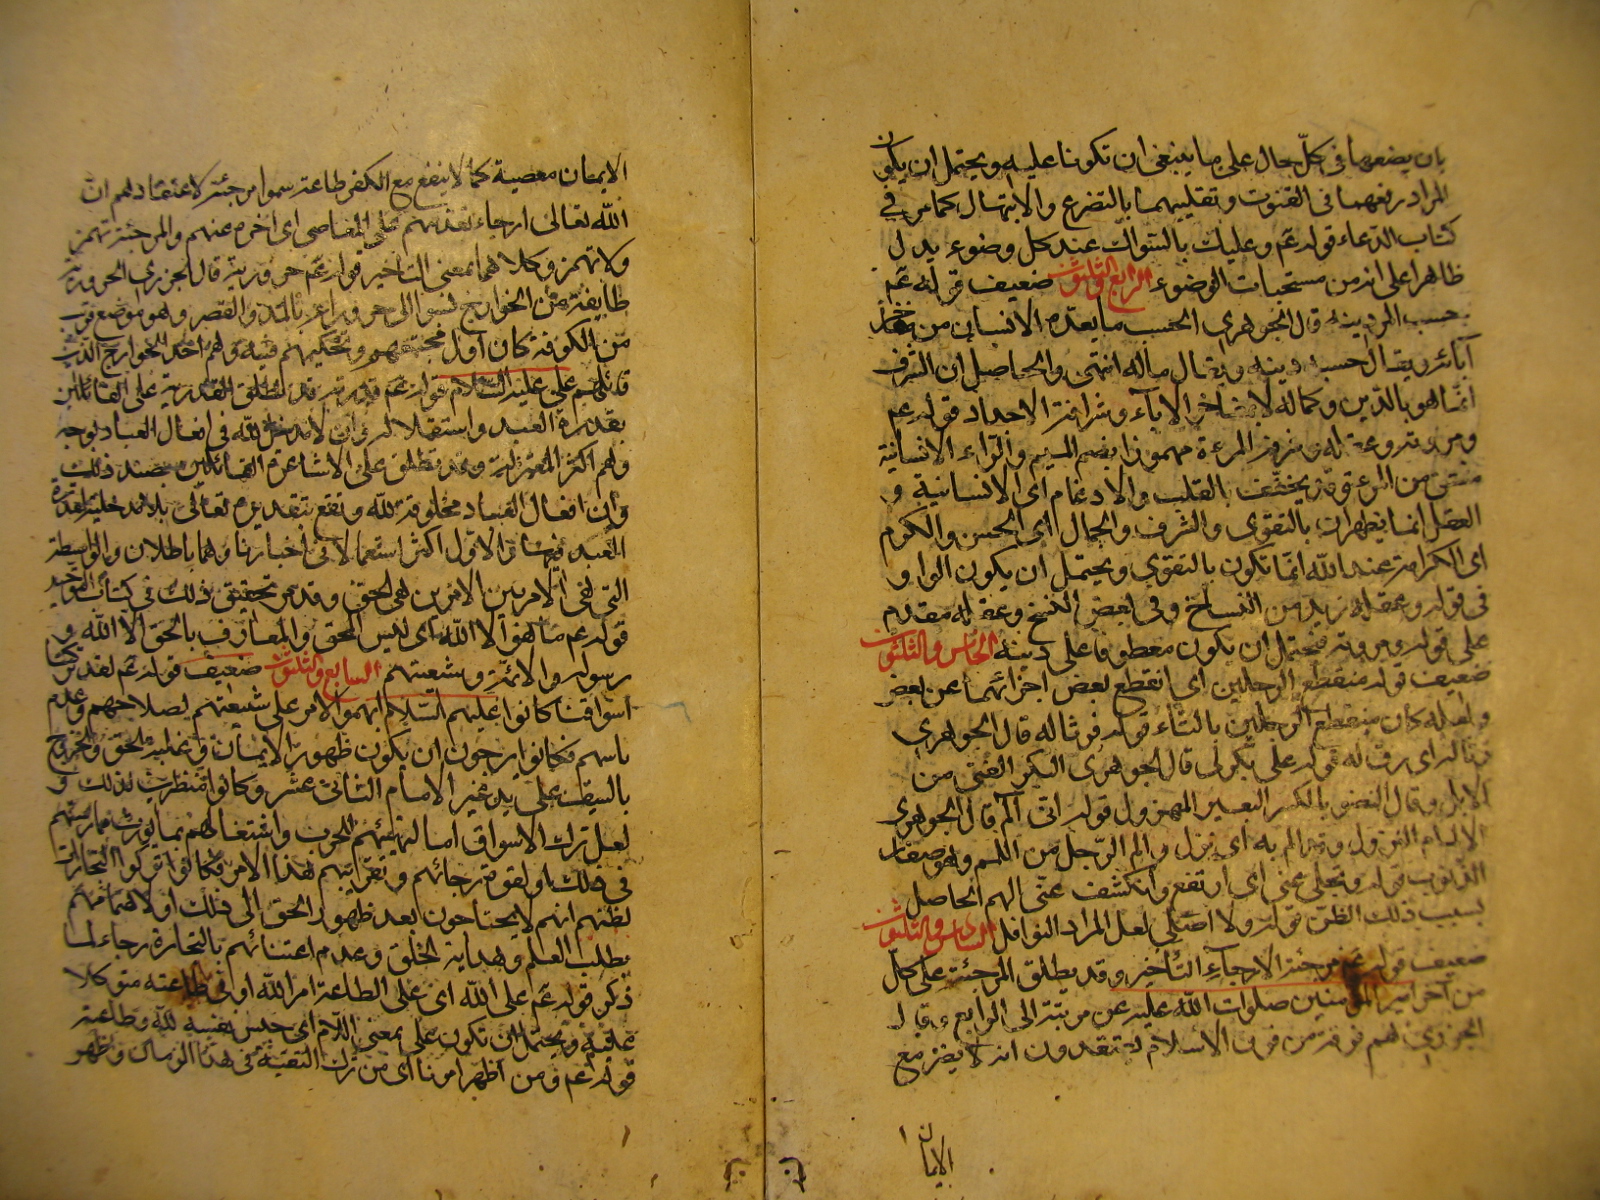 بان يضعهما فى كلّ حال على ما ينبغى ان تكونا عليه ويحتمل ان يكون
المراد رفعهما فى القنوت وتقليبهما بالتضرع والابتهال كما مر في
كتاب الدعاء قوله عم وعليك بالسواك عند كل وضوء يدل
ظاهرا على انه من مستحبات الوضوء الرابع والثلثون ضعيف قوله عم
حسب المرء دينه قال الجوهرى الحسب ما يعده الانسان من مفاخر
آبائه ويقال حسبه دينه ويقال ماله انتهى والحاصل ان الشرف
انما هو بالدين وكماله لا بمفاخر الاباء وشرافة الاجداد قوله عم
ومروته وعقله المروة مهموزا بضم الميم والراء الانسانية
مشتق من المرء وقد يخفف بالقلب والادغام اى الانسانية و
العقل انما يظهران بالتقوى والشرف والجمال اى الحسن والكرم
اى الكرامة عند الله انما تكون بالتقوى ويحتمل ان يكون الواو
فى قوله وعقله زيد من النساخ وفى بعض النسخ وعقله مقدم
على قوله ومروته فيحتمل ان يكون معطوفا على دينه الخامس والثلثون
ضعيف قوله منقطع الرجلين اى انقطع بعض اجزائهما عن بعض
ولعله كان متقطع الرجلين بالتاء قوله فرثا له قال الجوهرى
رثا له اى رق له قوله على بكر لى قال الجوهرى البكر الفتى من
الابل وقال النضو بالكسر البعير المهزول قوله انى الم قال الجوهرى
الالمام النزول وقد الم به اى نزل والم الرجل من اللمم وهو صغار
الذنوب قوله وتجلى عنى اى ارتفع وانكشف عنى الهم الحاصل
بسبب ذلك الظن قوله ولا اصلى لعل المراد النوافل السادس والثلثون
ضعيف قوله عم مرجئة الارجاء التأخير وقد يطلق المرجئة على كل
من اخر امير المؤمنين صلوات الله عليه عن مرتبته الى الرابع وقال
الجزرى هم فرقة من فرق الاسلام يعتقدون انه لا يضر مع
الايمان
الايمان معصية كما لا ينفع مع الكفر طاعة سموا مرجئة لاعتقادهم ان
الله تعالى ارجاء تعذيبهم على المعاصى اى اخره عنهم والمرجئة تهمز
ولا تهمز وكلاهما بمعنى التاخير قوله عم حرورية قال الجزرى الحرورية
طايفة من الخوارج نسبوا الى حروراء بالمد والقصر وهو موضع قريب
من الكوفة كان اول مجتمعهم وتحكيمهم فيه وهم احد الخوارج الذين
قاتلهم على عليه السلام قوله عم قدرية قد تطلق القدرية على القائلين
بقدرة العبد واستقلاله وان لا مدخل لله فى افعال العباد بوجه
وهم اكثر المعتزلة وقد تطلق على الاشاعرة القائلين بضد ذلك
وان افعال العباد مخلوقة لله وتقع بتقديره تعالى بلا مدخلية لقدرة
العبد فيها والاول اكثر استعمالا فى اخبارنا وهما باطلان والواسطة
التى هى الامر بين الامرين هى الحق وقد مر تحقيق ذلك فى كتاب التوحيد
قوله عم ما هو الا الله اى ليس المحق والمعارف بالحق الا الله و
رسوله والائمة وشيعتهم السابع والثلثون ضعيف قوله عم لقد تركنا
اسواقنا كانوا عليهم السلام ابهموا الامر على شيعتهم لصلاحهم وعدم
ياسهم فكانوا يرجون ان يكون ظهور الايمان وغلبة الحق والخروج
بالسيف على يد غير الامام الثانى عشر وكانوا منتظرين لذلك و
لعل ترك الاسواق اما لتهيئهم للحرب واشتغالهم بما يورث ممارستهم
فى ذلك او لقوة رجائهم وتقرابهم هذا الامر فكانوا تركوا التجارات
لظنهم انهم لا يحتاجون بعد ظهور الحق الى ذلك او لاهتمامهم
بطلب العلم وهداية الخلق وعدم اعتنائهم بالتجارة رجاء لما
ذكر قوله عم على الله اى على الطاعة امر الله او فى طاعته متوكلا
عليه ويحتمل ان تكون على بمعنى اللام اى حبس نفسه لله وطاعته
قوله عم ومن اظهر امرنا اى من ترك التقية فى هذا الزمان وظهر